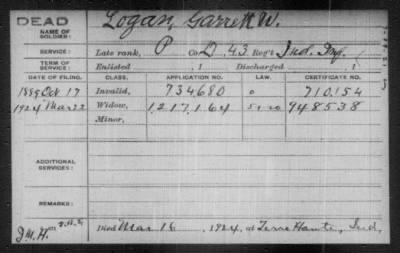 DEAD
NAME OF SOLDIER: Logan, Garrett W.
SERVICE: Late rank, P Co. D, 43 Reg't Ind. Inf.
TERM OF SERVICE: Enlisted , 1 Discharged , 1
DATE OF FILING. CLASS. APPLICATION NO. LAW. CERTIFICATE NO.
1889 Oct 17 Invalid, 734680 0 710,154
1924 Mar 22 Widow, 1,217,164 948538
Minor,
ADDITIONAL SERVICES:
REMARKS:
Died Mar 16, 1924, at Terre Haute, Ind.